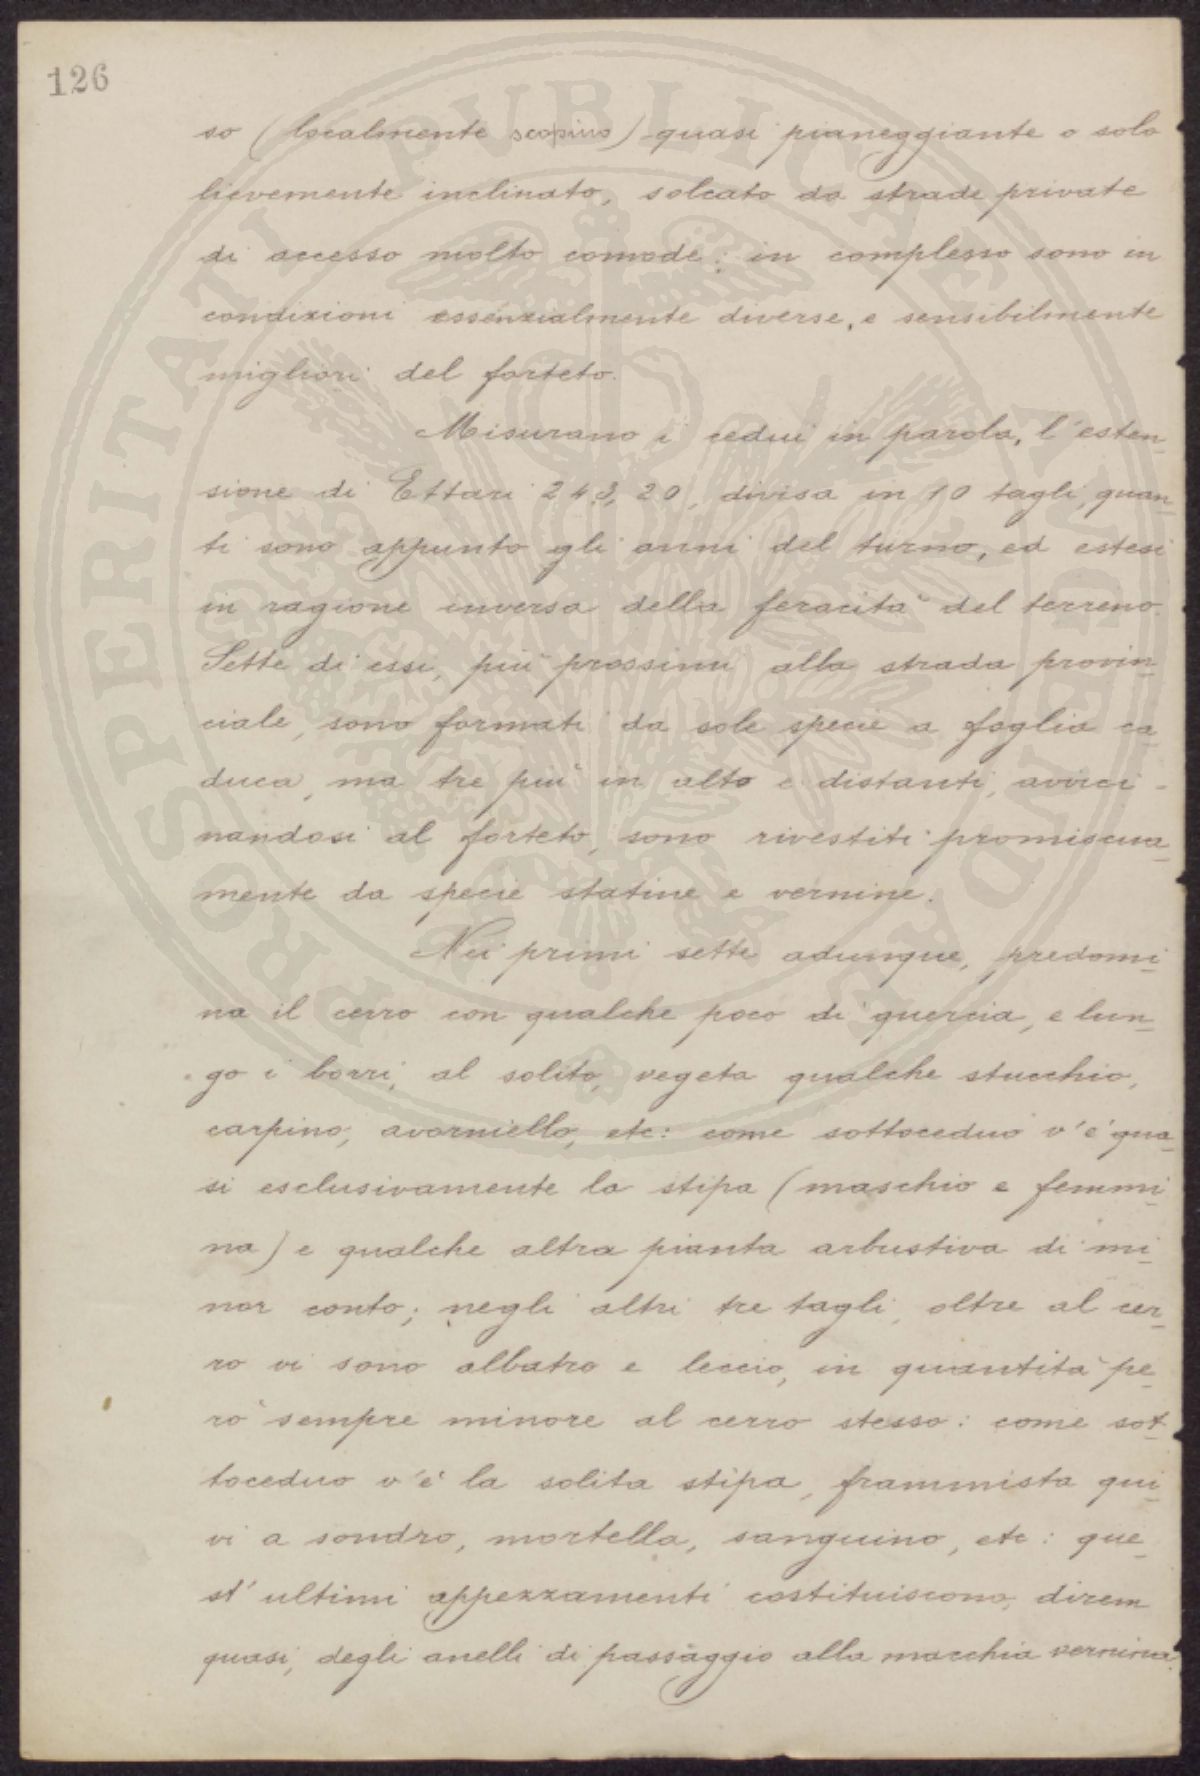 126
so (localmente scopino) quasi pianeggiante o solo
lievemente inclinato, solcato da strade private
di accesso molto comode; in complesso sono in
condizioni essenzialmente diverse, e sensibilmente
migliori del forteto.
Misurano i cedui in parola, l'esten-
sione di Ettari 243,20, divisa in 10 tagli, quan-
ti sono appunto gli anni del turno, ed estesi
in ragione inversa della feracità del terreno.
Sette di essi, più prossimi alla strada provin-
ciale, sono formati da sole specie a foglia ca-
duca, ma tre più in alto e distanti, avvici-
nandosi al forteto, sono rivestiti promiscua-
mente da specie statine e vernine.
Nei primi sette adunque, predomi-
na il cerro con qualche poco di quercia, e lun-
go i borri, al solito, vegeta qualche stucchio,
carpino, avorniello, etc: come sottoceduo v'è qua-
si esclusivamente la stipa (maschio e femmi-
na) e qualche altra pianta arbustiva di mi-
nor conto; negli altri tre tagli, oltre al cer-
ro vi sono albatro e leccio, in quantità pe-
rò sempre minore al cerro stesso: come sot-
toceduo v'è la solita stipa, frammista qui-
vi a sondro, mortella, sanguino, etc: que-
st'ultimi appezzamenti costituiscono, direm
quasi, degli anelli di passaggio alla macchia vernina.
PROSPERITATI PVBLICAE AVGENDAE